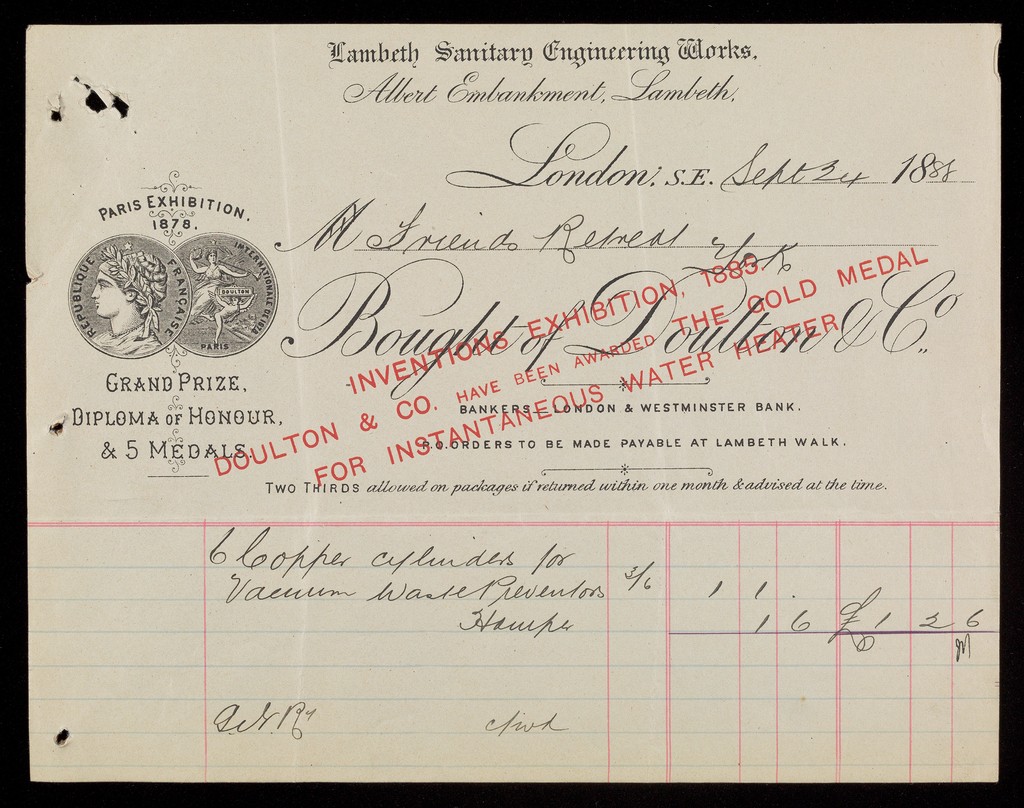 Lambeth Sanitary Engineering Works.
Albert Embankment, Lambeth,
London, S.E. Sept 24 1888
PARIS EXHIBITION.
1878.
REPUBLIQUE FRANÇAISE
INTERNATIONALE DE 1878
DOULTON
PARIS
GRAND PRIZE,
DIPLOMA OF HONOUR,
& 5 MEDALS.
M Friends Retreat
York
Bought of Doulton & Co.,
INVENTIONS EXHIBITION, 1885.
DOULTON & CO. HAVE BEEN AWARDED THE GOLD MEDAL
FOR INSTANTANEOUS WATER HEATER
BANKERS—LONDON & WESTMINSTER BANK.
P.O. ORDERS TO BE MADE PAYABLE AT LAMBETH WALK.
TWO THIRDS allowed on packages if returned within one month & advised at the time.
6 Copper cylinders for
Vacuum Waste Preventors 3/6 1 1 .
Hamper 1 6 £1 2 6
G.N.Ry